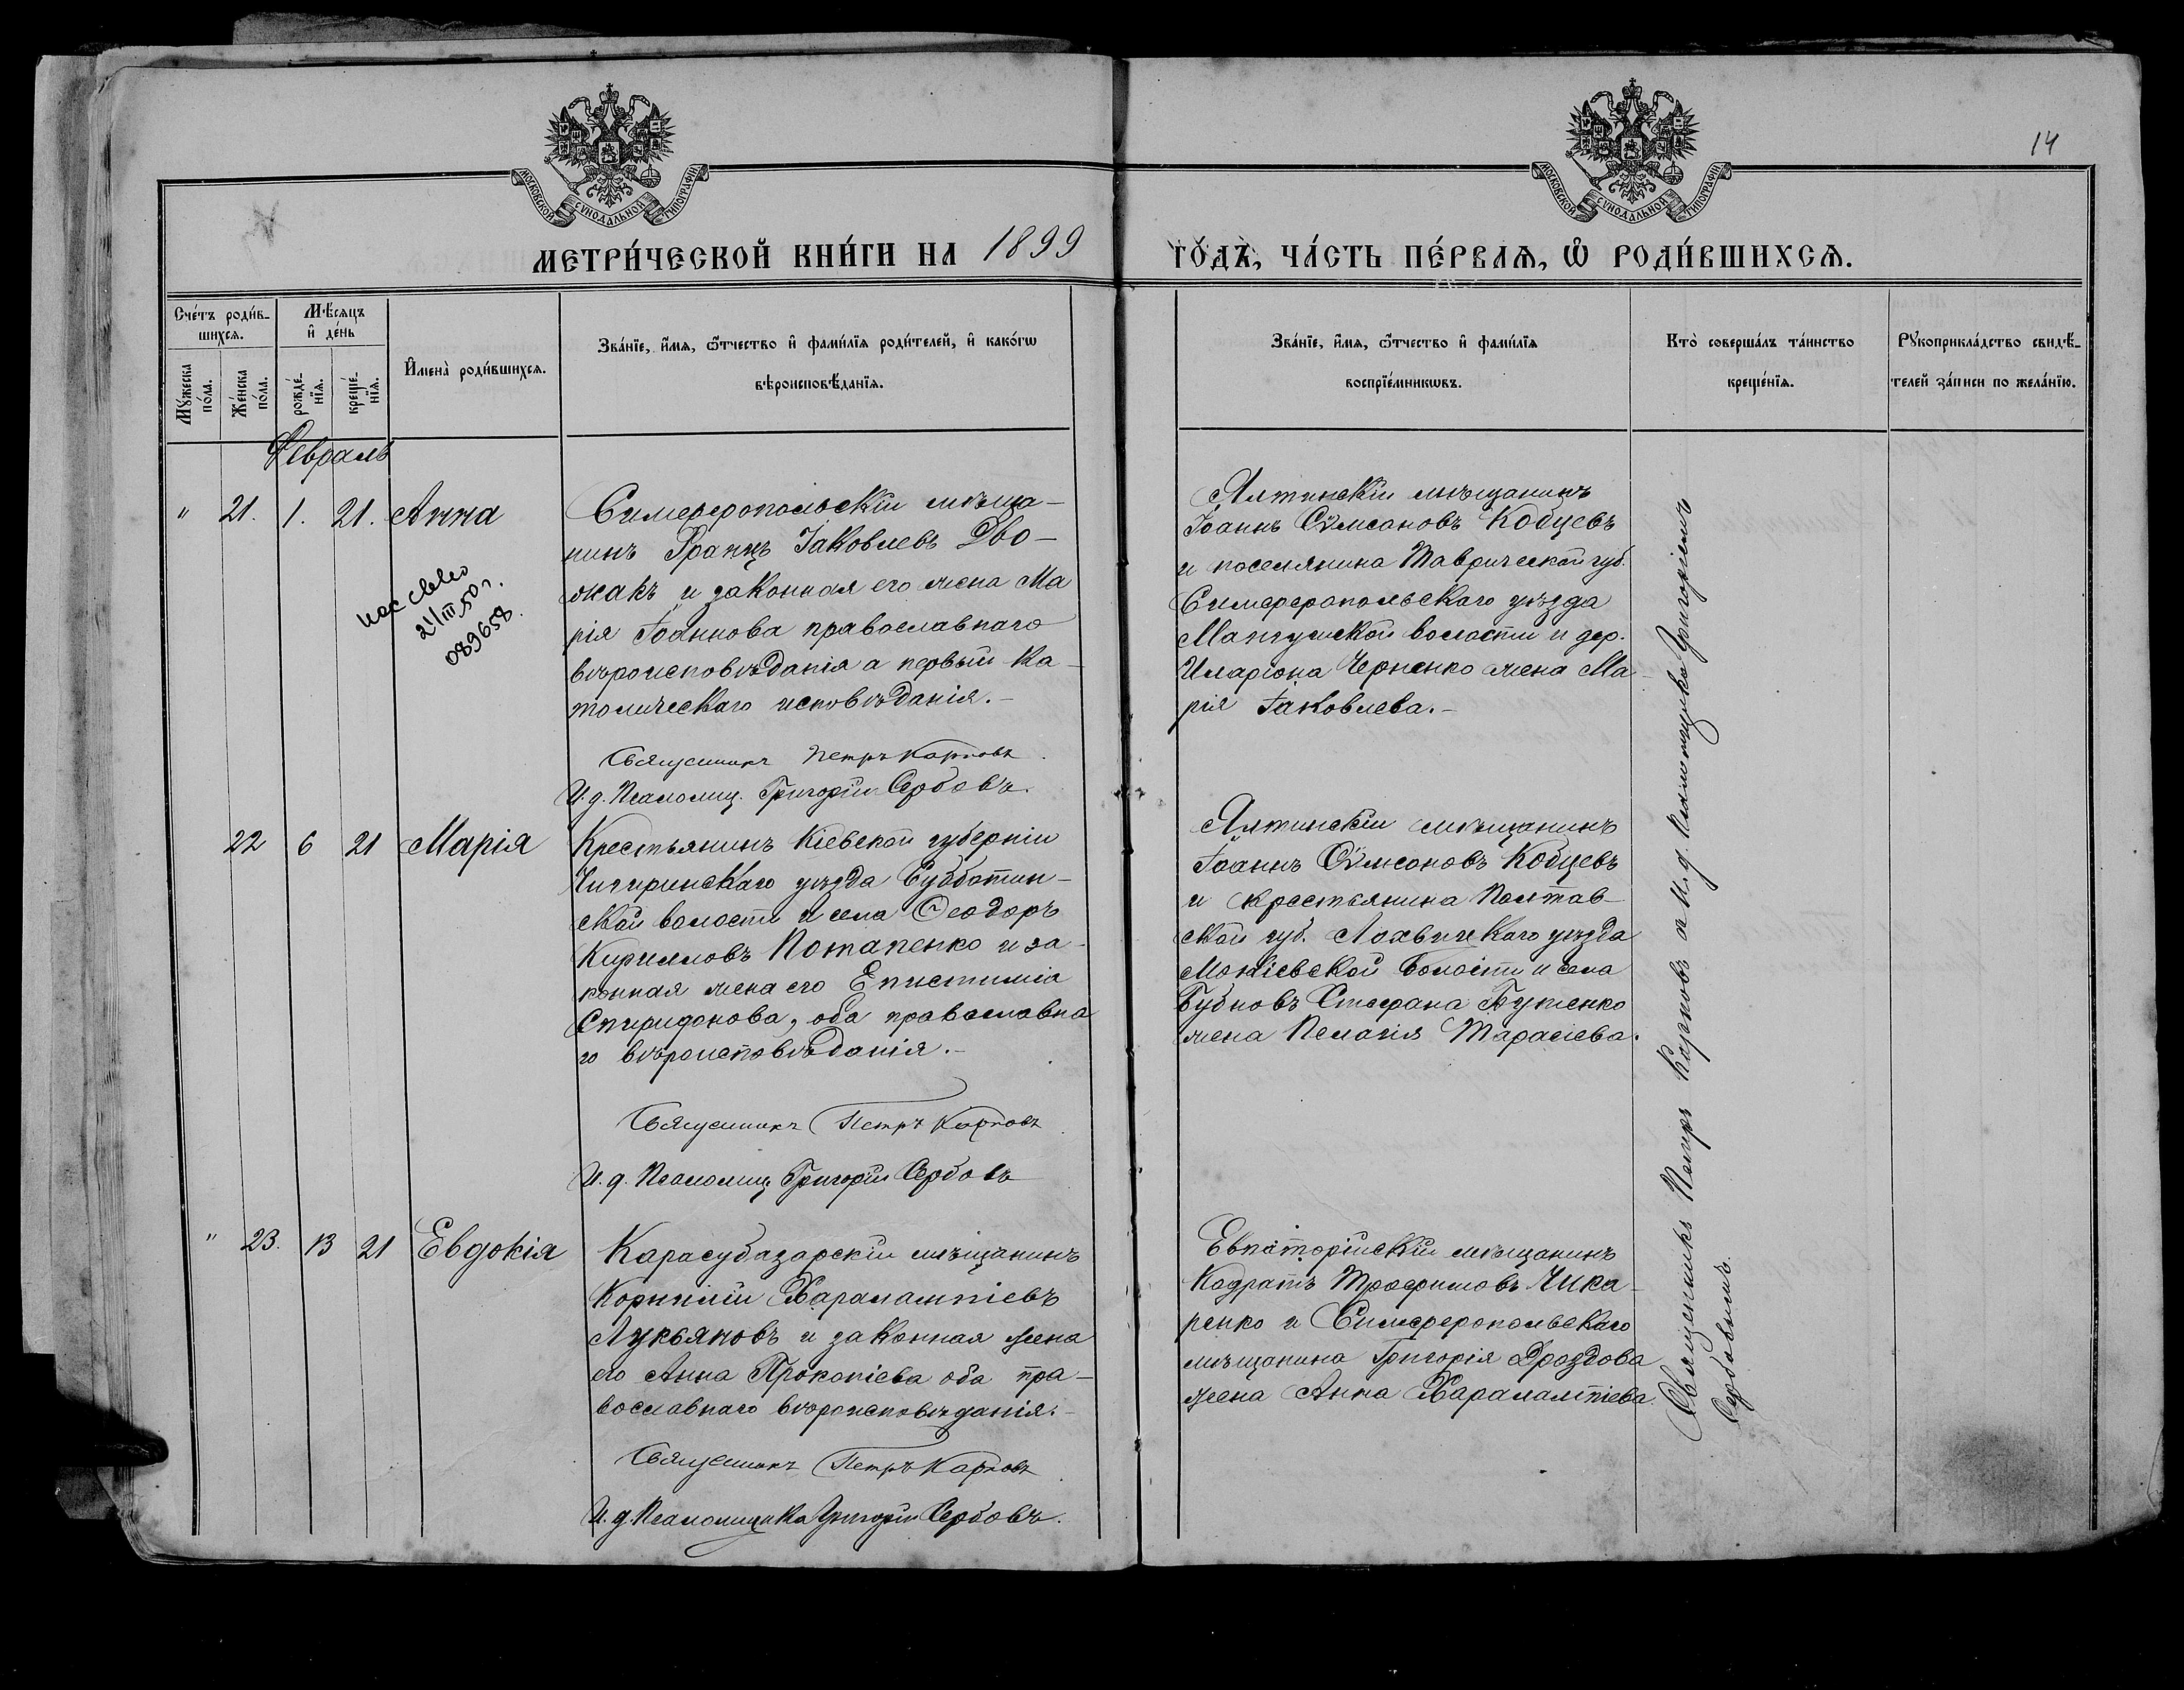 14
МОСКОВСКОЙ СУНОДАЛЬНОЙ ТИПОГРАФІИ
МОСКОВСКОЙ СУНОДАЛЬНОЙ ТИПОГРАФІИ
МЕТРИ́ЧЕСКОЙ КНИ́ГИ НА 1899
ГО́ДЪ, ЧА́СТЬ ПЕ́РВАѦ, Ѡ҆ РОДИ́ВШИХСѦ.
Сче́тъ роди́в-
шихсѧ.
Мꙋ́жеска
по́ла.
Же́нска
по́ла.
Мѣ́сѧцъ
и҆ де́нь
рожде́-
нїѧ.
креще́-
нїѧ.
И҆мена̀ роди́вшихсѧ.
Зва́нїе, и҆́мѧ, ѻ҆́тчество и҆ фами́лїѧ роди́телей, и҆ како́гѡ
вѣроисповѣ́данїѧ.
Зва́нїе, и҆́мѧ, ѻ҆́тчество и҆ фами́лїѧ
воспрїе́мникѡвъ.
Кто̀ соверша́лъ та́инство
креще́нїѧ.
Рꙋкоприкла́дство свидѣ́-
телей за́писи по жела́нїю.
Февраль
" 21. 1. 21. Анна
Симферопольскій мѣща-
нинъ Францъ Іаковлевъ Дво-
жакъ и законная его жена Ма
рія Іоаннова православнаго
вѣроисповѣданія а первый ка-
толическаго исповѣданія.-
Священникъ Петръ Карповъ
И.д. Псаломщ. Григорій Сербовъ.
21/III 50 г.
089658.
Ялтинскій мѣщанинъ
Іоаннъ Сѵмеоновъ Кобцевъ
и поселянина Таврической губ.
Симферопольскаго уѣзда
Мангушской волости и дер.
Иларіона Черненко жена Ма-
рія Іаковлева.-
22 6 21 Марія
Крестьянинъ Кіевской губерніи
Чигиринскаго уѣзда Субботин-
ской волости и села Ѳеодоръ
Кирилловъ Потапенко и за-
конная жена его Епистимія
Спиридонова, оба православна
го вѣроисповѣданія.-
Священникъ Петръ Карповъ
И.д. Псаломщ. Григорій Сербовъ
Ялтинскій мѣщанинъ
Іоаннъ Сѵмеоновъ Кобцевъ
и крестьянина Полтав-
ской губ. Лохвицкаго уѣзда
волости и села
Стефана Бутенко
жена Пелагія Тарасіева.
" 23. 13 21 Евдокія
Карасубазарскій мѣщанинъ
Корнилій Харалампіевъ
Лукьяновъ и законная жена
его Анна Прокопіева оба пра-
вославнаго вѣроисповѣданія.-
Священникъ Петръ Карповъ
И.д. Псаломщика Григорій Сербовъ.
Евпаторійскій мѣщанинъ
Кодратъ Трофимовъ Чика-
ренко и Симферопольскаго
мѣщанина Григорія Дроздова
жена Анна Харалампіева.
Священникъ Петръ Карповъ съ И.д. Псаломщика Григоріемъ
Сербовымъ.